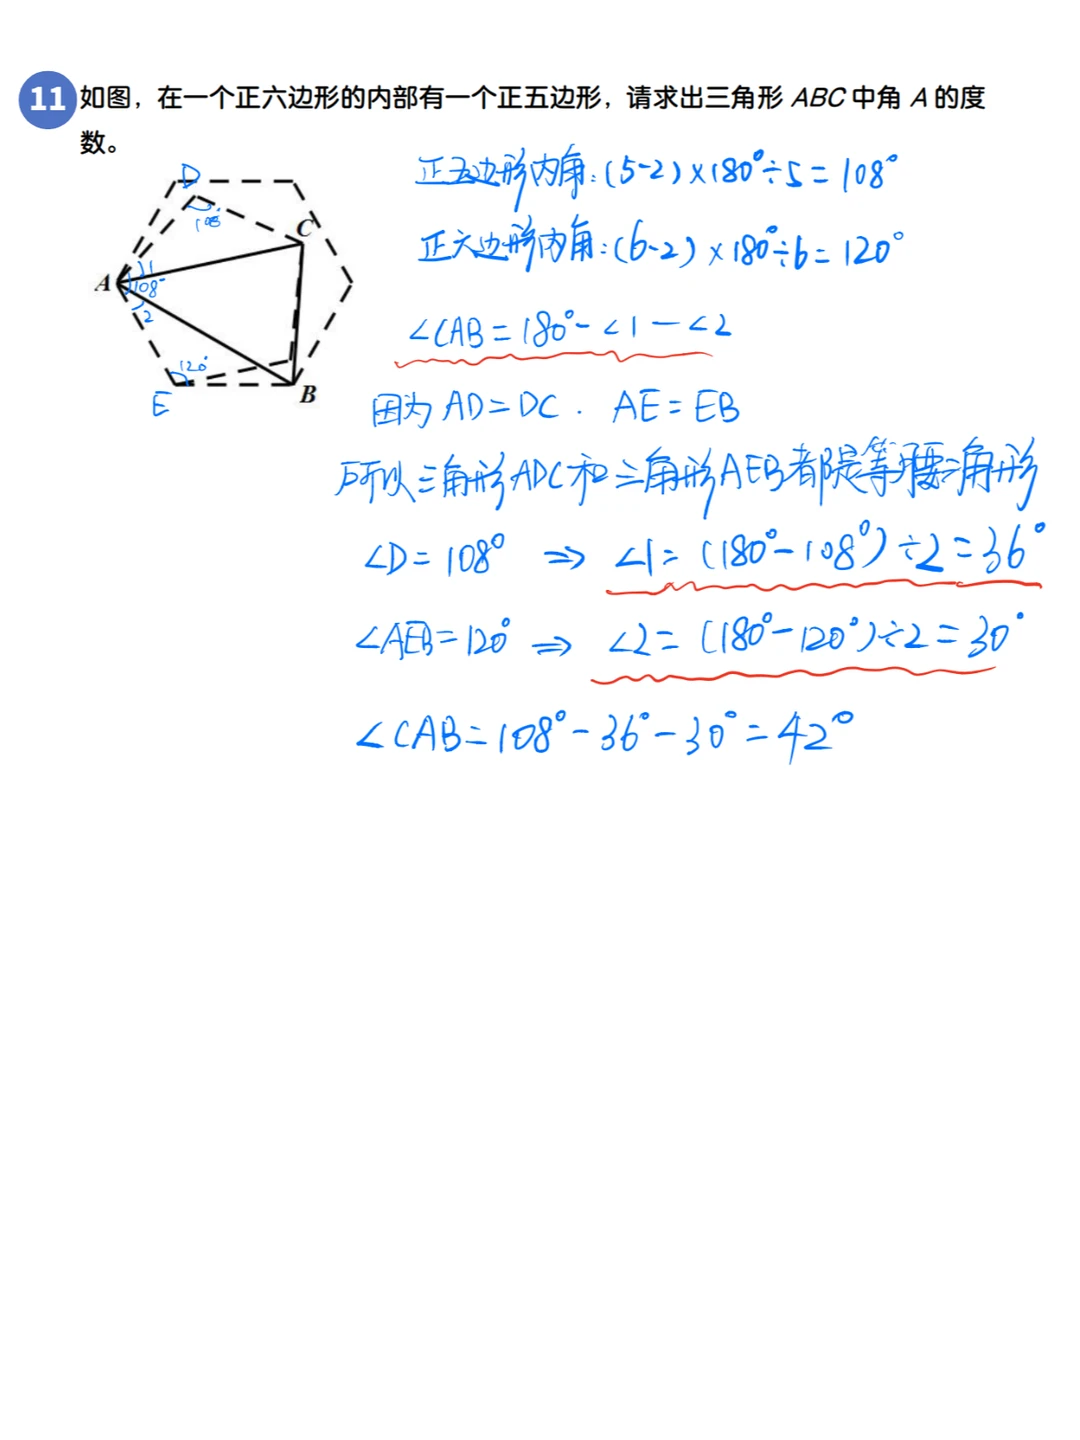 11 如图，在一个正六边形的内部有一个正五边形，请求出三角形 ABC 中角 A 的度
数。
正五边形内角:(5-2)×180°÷5=108°
D
108°
C
正六边形内角:(6-2)×180°÷6=120°
A
1
108°
2
∠CAB=180°-∠1-∠2
120°
B
E
因为 AD=DC. AE=EB
所以三角形ADC和三角形AEB都是等腰三角形
∠D=108° ⇒ ∠1=(180°-108°)÷2=36°
∠AEB=120° ⇒ ∠2=(180°-120°)÷2=30°
∠CAB=108°-36°-30°=42°